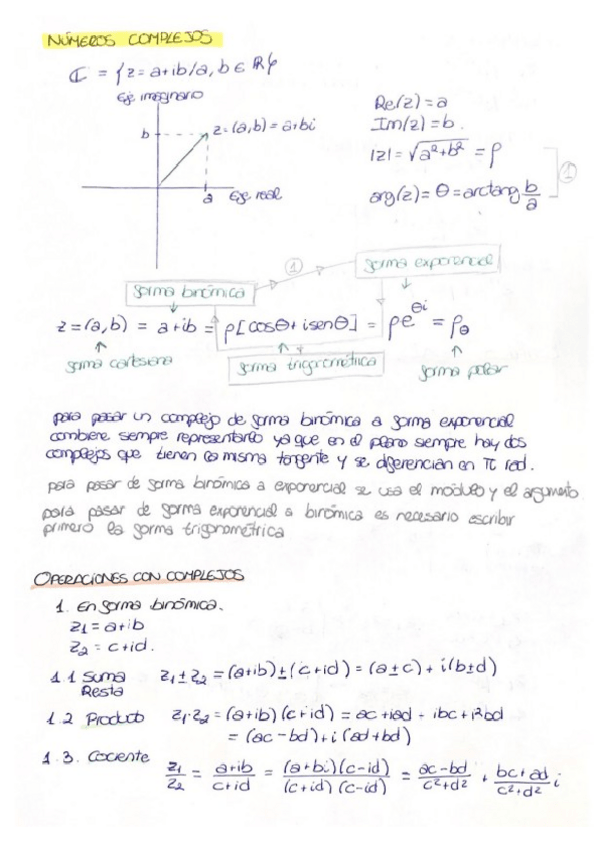 NÚMEROS COMPLEJOS
ℂ = {z = a+ib/a, b ∈ ℝ}
Eje imaginario
b
z = (a,b) = a+bi
a
Eje real
Re(z) = a
Im(z) = b.
|z| = √a²+b² = ρ
arg(z) = θ = arctang b/a
1
1
forma binómica
forma exponencial
z = (a,b) = a+ib = ρ[cosθ+isenθ] = ρe^θi = ρ_θ
forma cartesiana
forma trigonométrica
forma polar
para pasar un complejo de forma binómica a forma exponencial
combiene siempre representarlo ya que en el plano siempre hay dos
complejos que tienen la misma tangente y se diferencian en π rad.
para pasar de forma binómica a exponencial se usa el módulo y el argumento
para pasar de forma exponencial a binómica es necesario escribir
primero la forma trigonométrica
OPERACIONES CON COMPLEJOS
1. En forma binómica.
z₁ = a+ib
z₂ = c+id.
1.1 Suma
Resta
z₁ ± z₂ = (a+ib) ± (c+id) = (a±c) + i(b±d)
1.2 Producto z₁·z₂ = (a+ib)(c+id) = ac + iad + ibc + i²bd
= (ac-bd)+i(ad+bd)
1.3. Cociente z₁/z₂ = a+ib/c+id = (a+bi)(c-id)/(c+id)(c-id) = ac-bd/c²+d² + bc+ad/c²+d² i